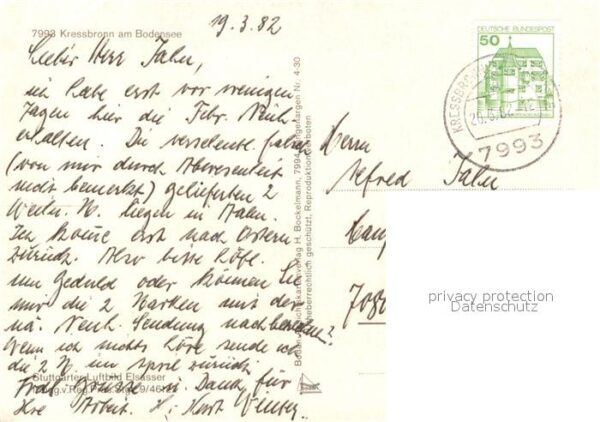 19.3.82
7993 Kressbronn am Bodensee
Lieber Herr Jahn,
ich habe erst vor wenigen
Tagen hier die Febr. Neuh.
erhalten. Die versehentl. falsch
(von mir durch Abwesenheit
nicht bemerkt) gelieferten 2
M. liegen in Aalen.
Ich komme erst nach Ostern
zurück. Also bitte höfl.
um Geduld oder können Sie
mir die 2 Marken mit der
nä. Neuh. Sendung nachbelasten?
Wenn ich nichts höre sende ich
die 2 M. im April zurück.
Stuttgarter Luftbild Elsässer
Frdl. Grüsse u. Dank für
Ihre Arbeit. Ihr
Bockelmann, 7994 Langenargen Nr. 4-30
Urheberrechtlich geschützt, Reproduktion verboten
DEUTSCHE BUNDESPOST
50
KRESSBRONN
7993
Herrn
Alfred Jahn
privacy protection
Datenschutz